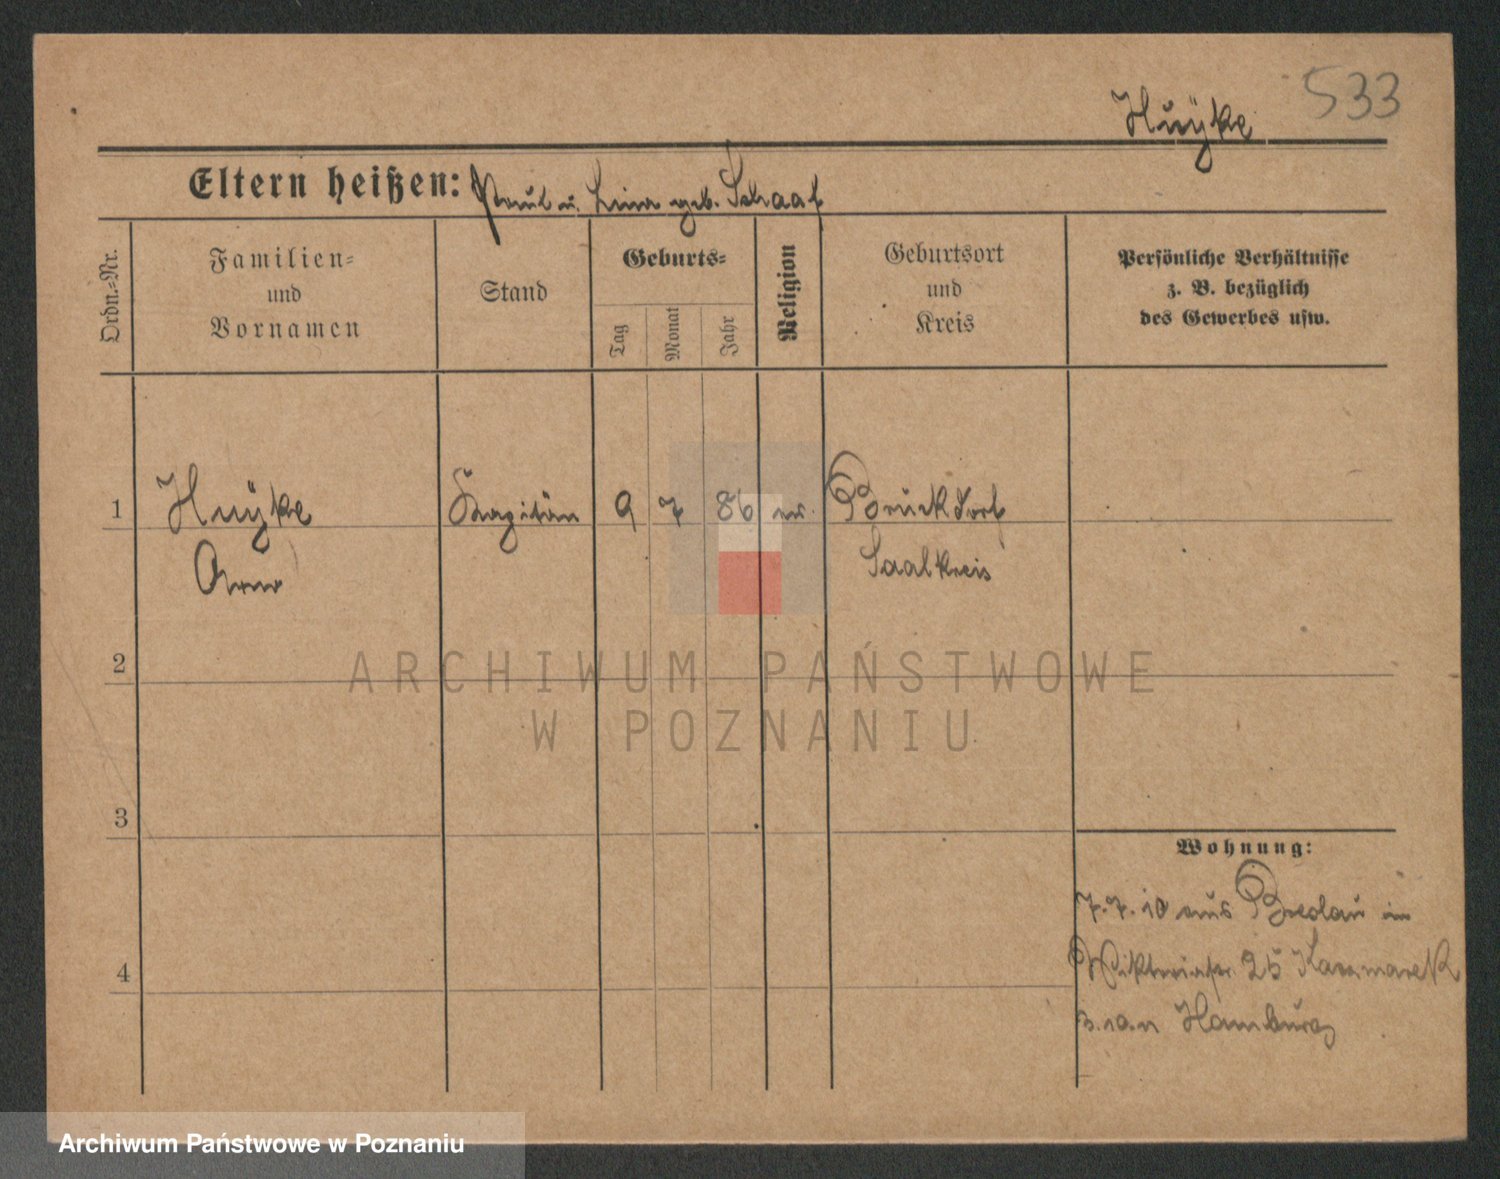 533
Huÿke
Eltern heißen: Paul u. Lina geb. Schaaf
Ordn.-Nr.
Familien-
und
Vornamen
Stand
Geburts-
Tag
Monat
Jahr
Religion
Geburtsort
und
Kreis
Persönliche Verhältnisse
z. B. bezüglich
des Gewerbes usw.
1 Huÿke Kapitän 9 7 86 ev. Bruckdorf
Arno Saalkreis
2
ARCHIWUM PAŃSTWOWE
W POZNANIU
3
Wohnung:
7.7.10 aus Breslau in
Viktoriastr. 25 Kaczmarek
Hamburg
4
Archiwum Państwowe w Poznaniu